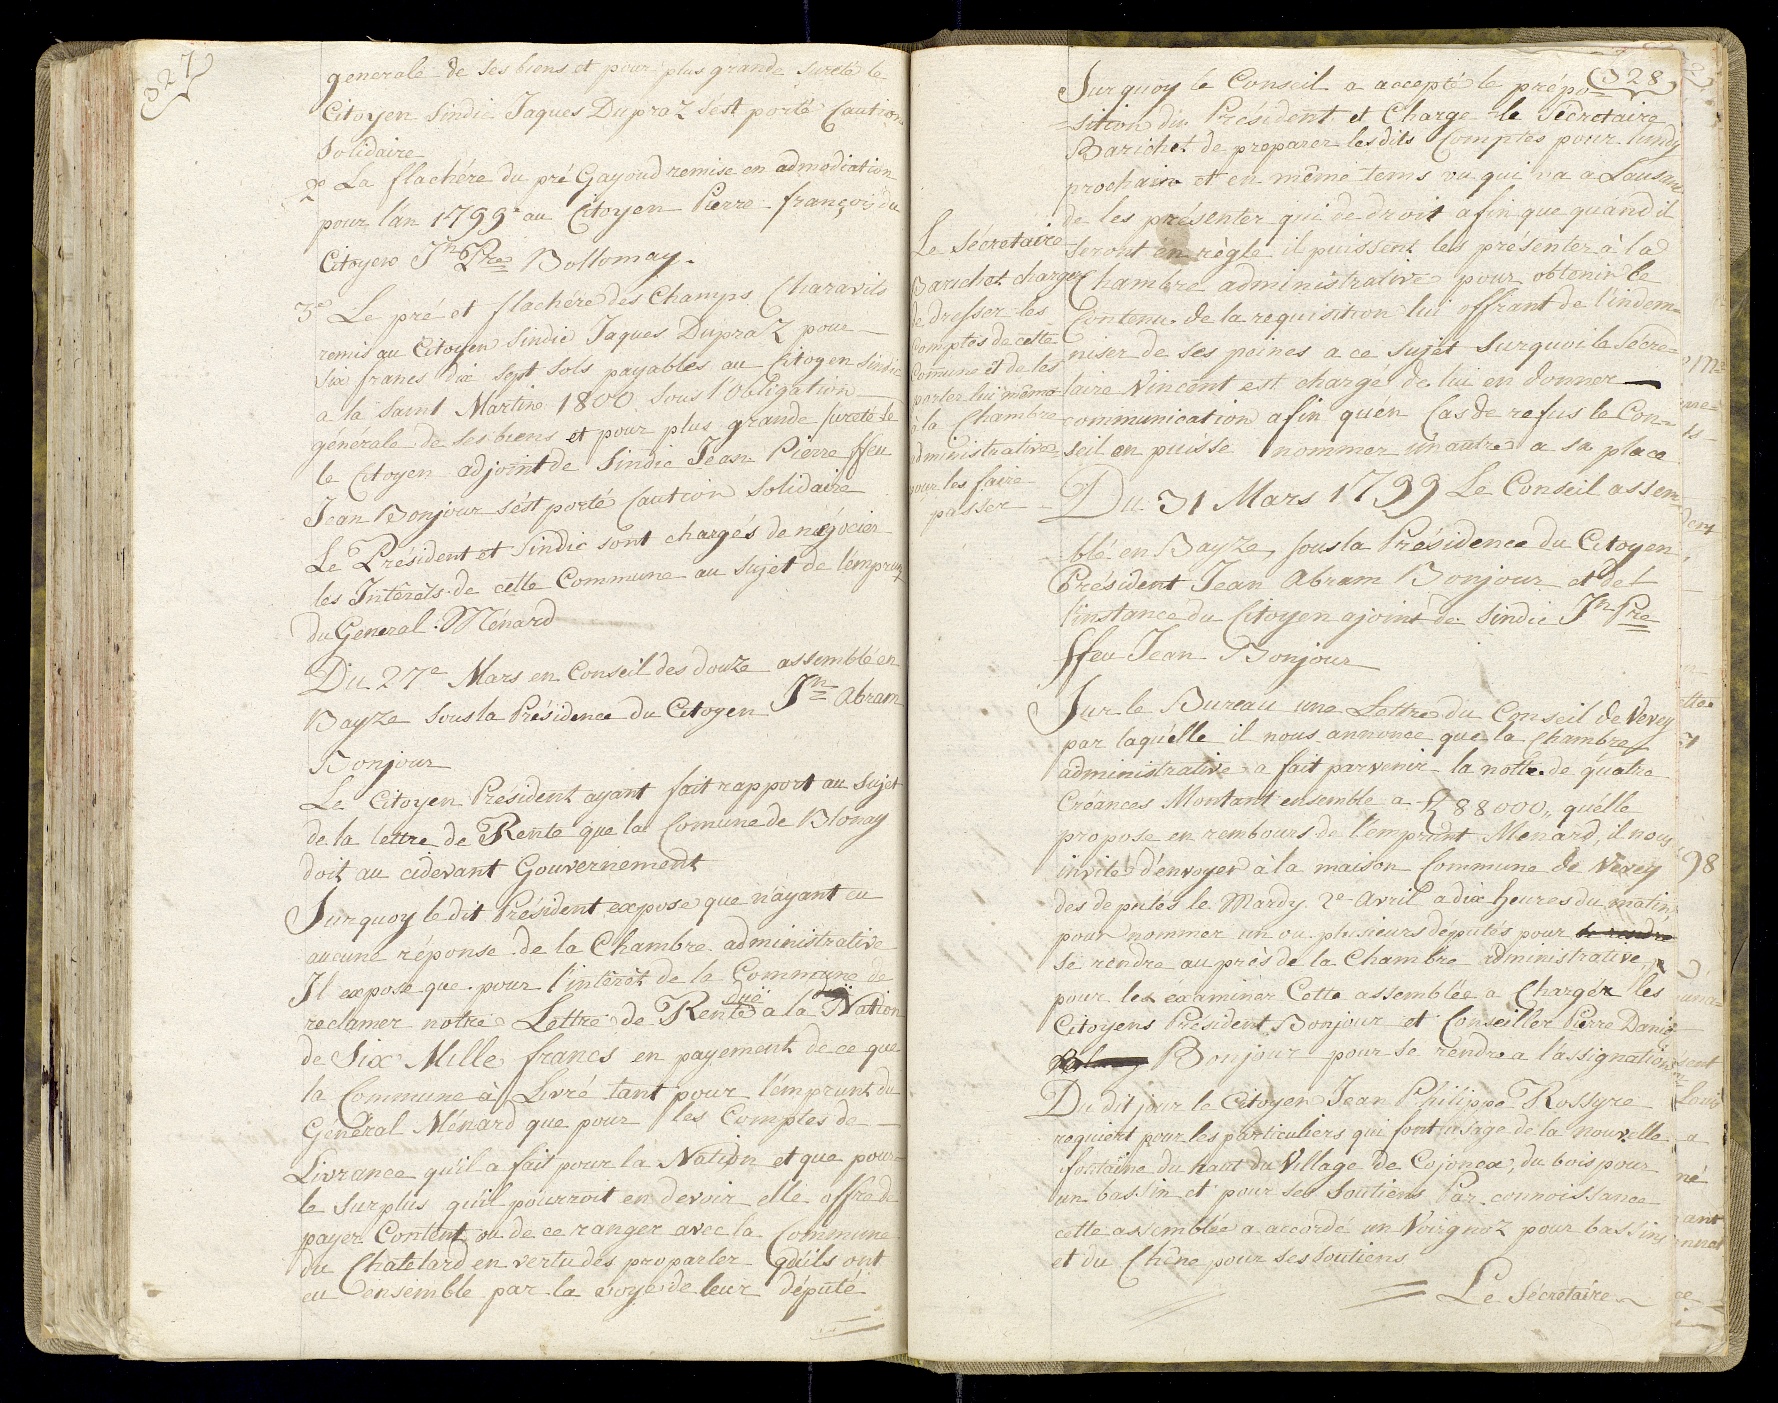 327
generale de ses biens et pour plus grande sureté le
Citoyen Sindic Jaques Dupraz s'est porté Caution
Solidaire
2º La flachére du pré Gayoud remise en admodiation
pour l'an 1799º au Citoyen Pierre françois du
Citoyen Jn Pre Bottomay.
3º Le pré et flachére des Champs Charavils
remis au Citoyen Sindic Jaques Dupraz pour
six francs dix sept sols payables au Citoyen Sindic
a la Saint Martin 1800 sous l'Obligation
générale de ses biens et pour plus grande sureté le
le Citoyen adjoint de Sindic Jean Pierre ffeu
Jean Bonjour s'est porté Caution Solidaire
Le Président et Sindic sont chargés de négocier
les Intérêts de cette Commune au sujet de l'emprunt
du General Ménard
Du 27e Mars en Conseil des douze assemblé en
Bayze sous la Présidence du Citoyen Jn Abram
Bonjour
Le Citoyen Président ayant fait rapport au sujet
de la lettre de Rente que la Comune de Blonay
doit au cidevant Gouvernement
Surquoy le dit Président expose que n'ayant eu
aucune réponse de la Chambre administrative
Il expose que pour l'intérêt de la Commune de
reclamer notre Lettre de Rente düe a la Nation
de Six Mille francs en payement de ce que
la Commune à Livré tant pour l'emprunt du
Général Ménard que pour les Comptes de
Livrance qu'il a fait pour la Nation et que pour
le surplus qu'il pourroit en devoir elle offre de
payer Content ou de ce ranger avec la Commune
du Chatelard en vertu des proparler qu'ils ont
eu ensemble par la voye de leur député
328
Surquoy le Conseil a accepté le prépo=
=sition du Président et Charge le Sécretaire
Barichet de preparer lesdits Comptes pour lundy
prochain et en même tems vu qui va a Lausane
de les présenter qui de droit afin que quand il
seront en règle il puissent les présenter à la
Chambre administrative pour obtenir le
Contenu de la requisition lui offrant de l'indem=
niser de ses peines a ce sujet Surquoi le sécre=
taire Vincent est chargé de lui en donner
communication afin qu'en Cas de refus le Con=
seil en puisse nommer un autre a sa place
Le Sécretaire
Barichet charger
de dresser les
Comptes de cette
Comune et de les
porter lui même
à la Chambre
administrative
pour les faire
passer
Du 31 Mars 1799 Le Conseil assem
blé en Bayze sous la Présidence du Citoyen
Président Jean Abram Bonjour et de L
l'instance du Citoyen ajoint de Sindic Jn Pre
ffeu Jean Bonjour
Sur le Bureau une Lettre du Conseil de Vevey
par laquélle il nous annonce que la Chambre
administrative a fait parvenir la notte de quatre
Créances Montant ensemble a 88000,, quélle
propose en rembours de l'emprunt Menard, il nous
invite d'envoyer à la maison Commune de Vevey
des députés le Mardy 2e Avril a dix heures du matin
pour nommer un ou plusieurs députés pour se rendre
se rendre auprès de la Chambre administrative
pour les éxaminer Cette assemblée a Charger les
Citoyens Président Bonjour et Conseiller Pierre Daniel
Bonjour pour se rendre a l'assignation
Du dit jour le Citoyen Jean Philippe Rossyre
requiert pour les particuliers qui font usage de la nouvelle
fontaine du haut du Village de Cojonex, du bois pour
un bassin et pour ses Soutiens Par connoissance
cette assemblée a accordé un Voirgnoz pour bassins
et du Chêne pour ses Soutiens
Le Sécretaire